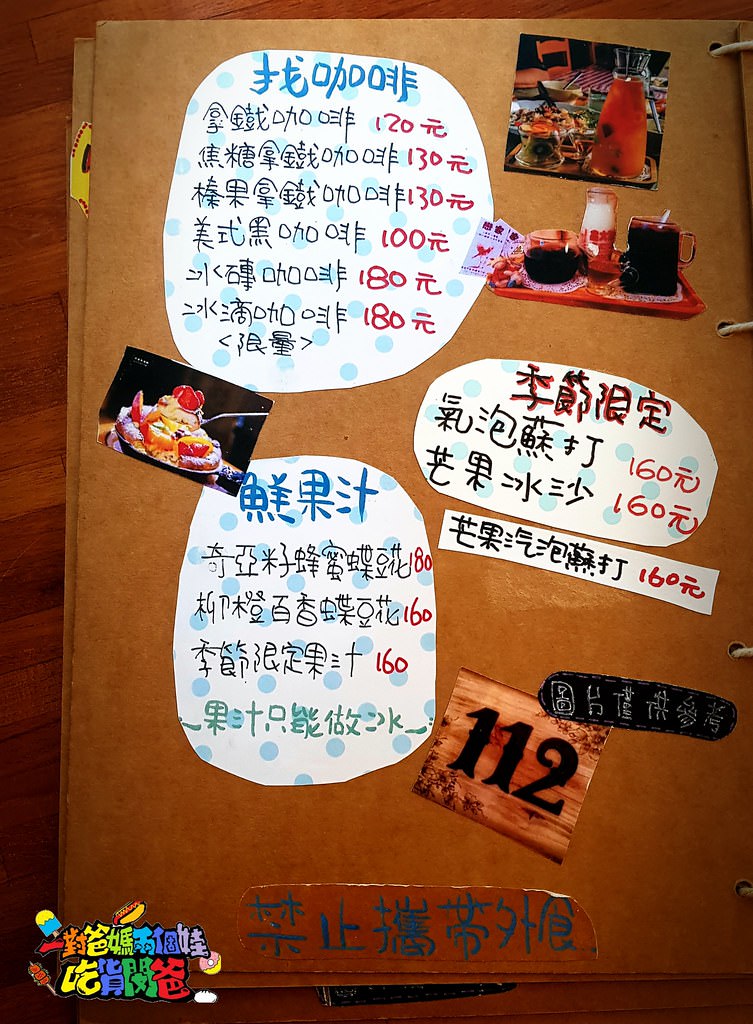 找咖啡
拿鐵咖啡 120元
焦糖拿鐵咖啡 130元
榛果拿鐵咖啡 130元
美式黑咖啡 100元
冰磚咖啡 180元
冰滴咖啡 180元
<限量>
季節限定
氣泡蘇打 160元
芒果冰沙 160元
芒果汽泡蘇打 160元
鮮果汁
奇亞籽蜂蜜蝶豆花 180
柳橙百香蝶豆花 160
季節限定果汁 160
果汁只能做冰
圖片僅供參考
112
禁止攜帶外食
一對爸媽兩個娃
吃貨閔爸